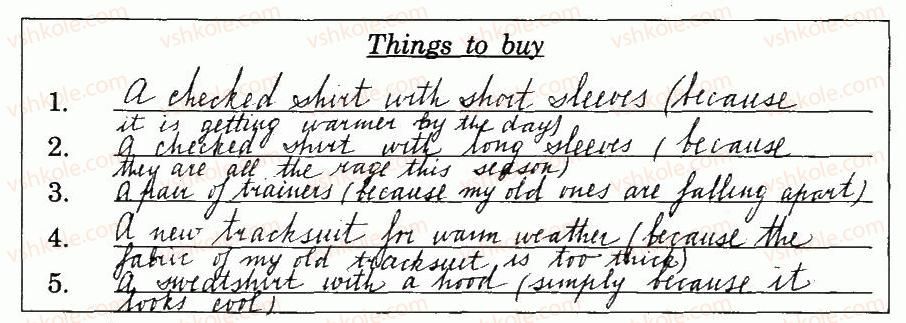 Things to buy
1. A checked shirt with short sleeves (because
it is getting warmer by the day)
2. A checked shirt with long sleeves (because
they are all the rage this season)
3. A pair of trainers (because my old ones are falling apart)
4. A new tracksuit for warm weather (because the
fabric of my old tracksuit is too thick)
5. A sweatshirt with a hood (simply because it
looks cool)